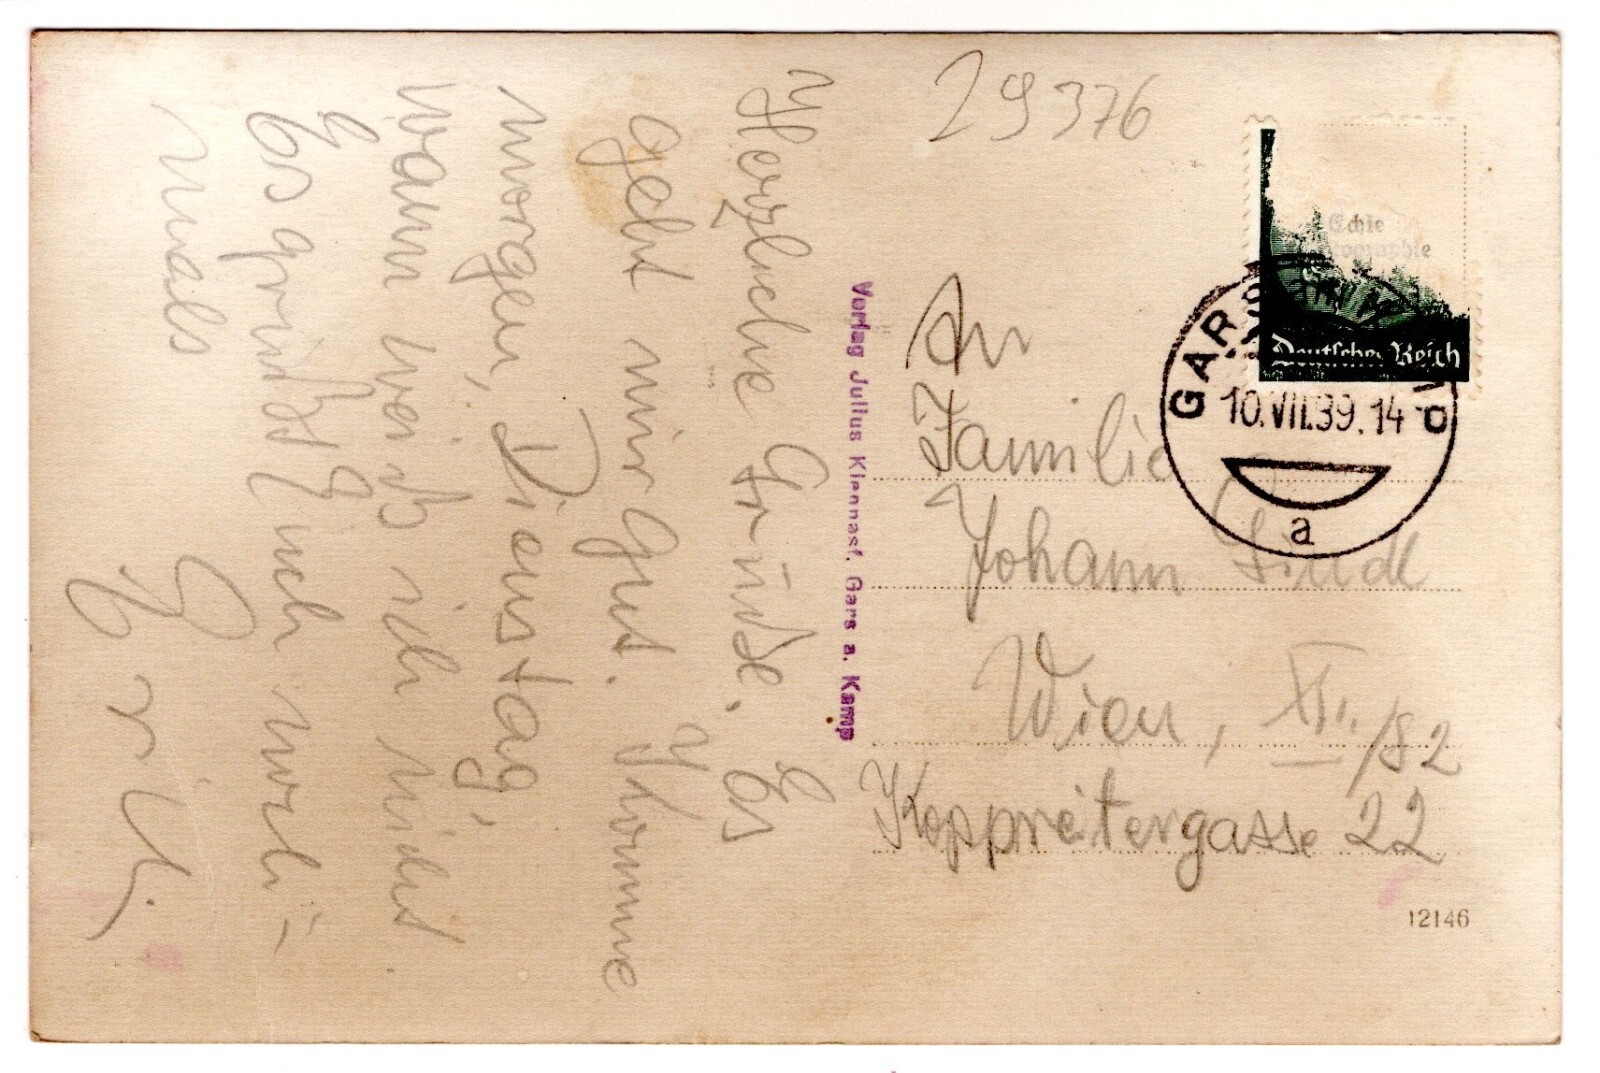 29376
Echte
Deutsches Reich
GARS
10.VII.39.14
a
An
Familie
Johann
Wien, XII./82
Koppreitergasse 22
12146
Verlag Julius Kiennast, Gars a. Kamp
Herzliche Grüße. Es
geht mir gut. Komme
morgen, Dienstag,
wann weiß ich nicht.
Es grüßt Euch noch-
mals